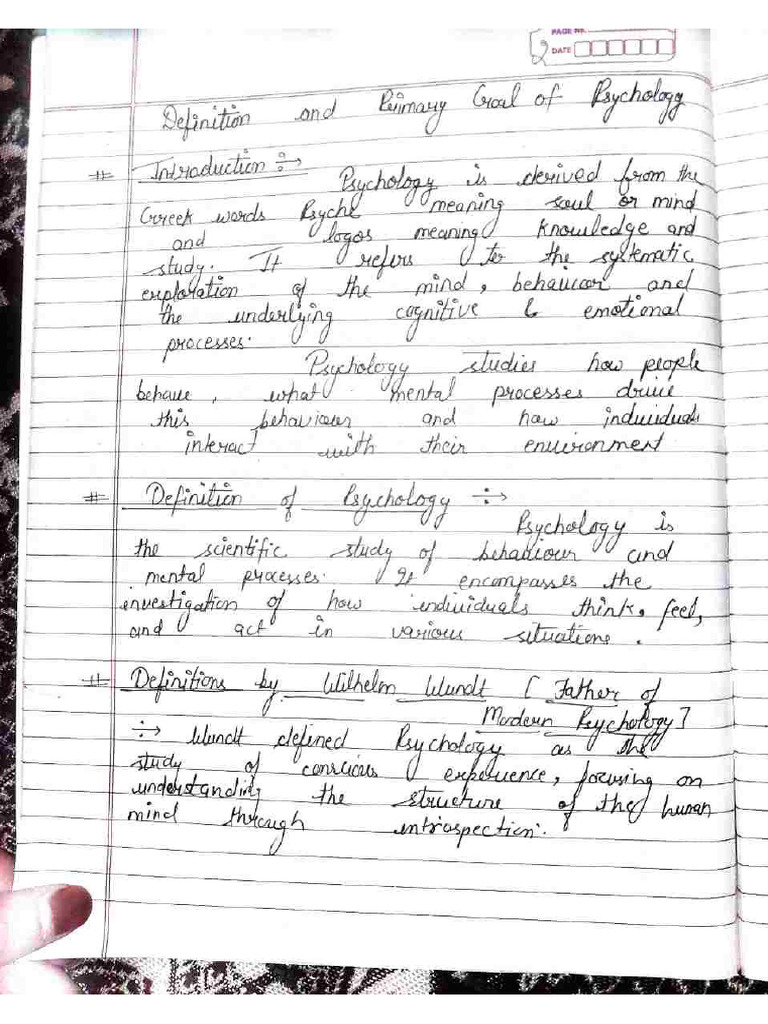 PAGE NO.
DATE
Definition and Primary Goal of Psychology
# Introduction ÷→
Psychology is derived from the
Greek words Psyche meaning soul or mind
and logos meaning knowledge and
study. It refers to the systematic
exploration of the mind, behaviour and
the underlying cognitive & emotional
processes.
Psychology studies how people
behave, what mental processes drive
this behaviour and how individuals
interact with their environment
# Definition of Psychology ÷→
Psychology is
the scientific study of behaviour and
mental processes. It encompasses the
investigation of how individuals think, feel,
and act in various situations.
# Definitions by Wilhelm Wundt [Father of
Modern Psychology]
÷→ Wundt defined Psychology as the
study of conscious experience, focusing on
understanding the structure of the human
mind through introspection.